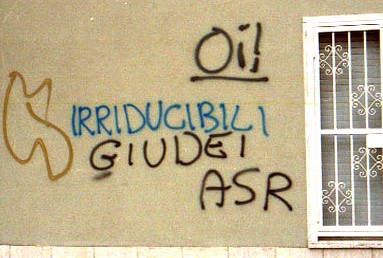 Oi!
IRRIDUCIBILI
GIUDEI
ASR